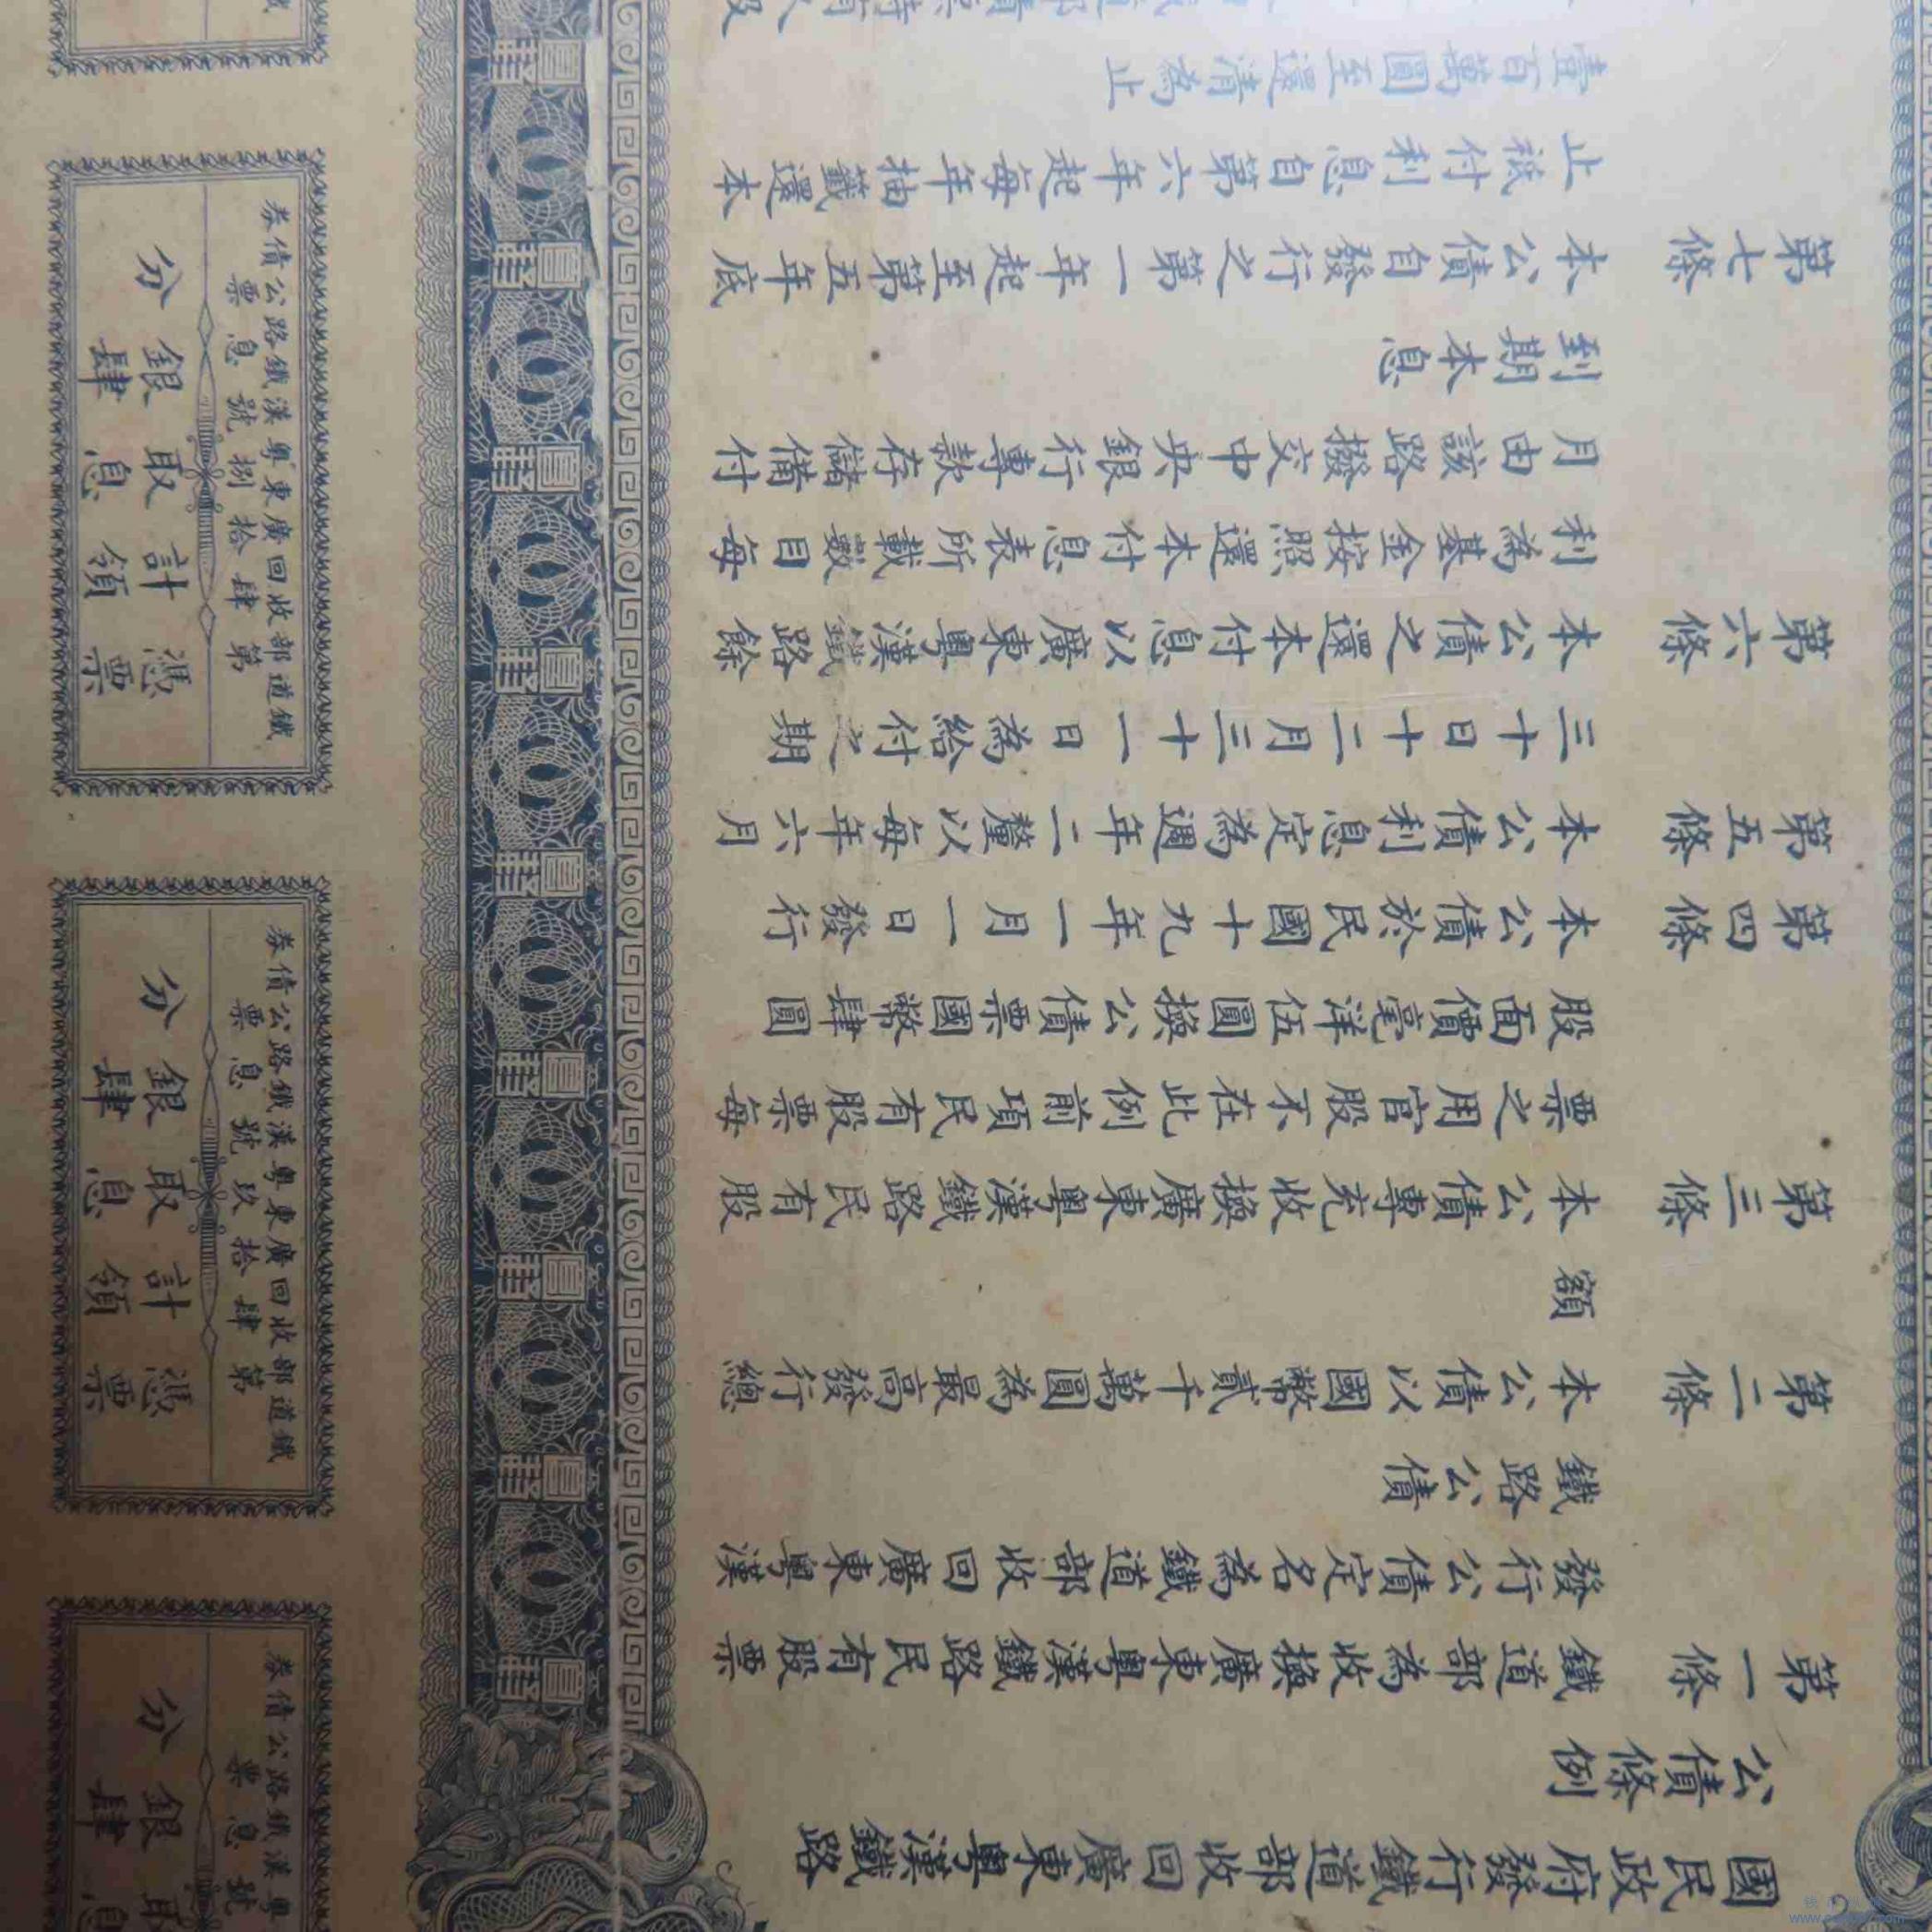 國民政府發行鐵道部收回廣東粵漢鐵路
公債條例
第一條 鐵道部為收換廣東粵漢鐵路民有股票
發行公債定名為鐵道部收回廣東粵漢
鐵路公債
第二條 本公債以國幣貳千萬圓為最高發行總
額
第三條 本公債專充收換廣東粵漢鐵路民有股
票之用官股不在此例前項民有股票每
股面價毫洋伍圓換公債票國幣肆圓
第四條 本公債於民國十九年一月一日發行
第五條 本公債利息定為週年二釐以每年六月
三十日十二月三十一日為給付之期
第六條 本公債之還本付息以廣東粵漢鐵路餘
利為基金按照還本付息表所載數目每
月由該路撥交中央銀行專款存儲備付
到期本息
第七條 本公債自發行之第一年起至第五年底
止祇付利息自第六年起每年抽籤還本
壹百萬圓至還清為止
粵漢鐵路公債券
號息票
取息
銀肆
分
鐵道部收回廣東粵漢鐵路公債券
第肆拾玖號息票
憑票
計領
取息
銀肆
分
鐵道部收回廣東粵漢鐵路公債券
第肆拾捌號息票
憑票
計領
取息
銀肆
分
圓肆
圓肆
圓肆
圓肆
圓肆
圓肆
圓肆
圓肆
圓肆